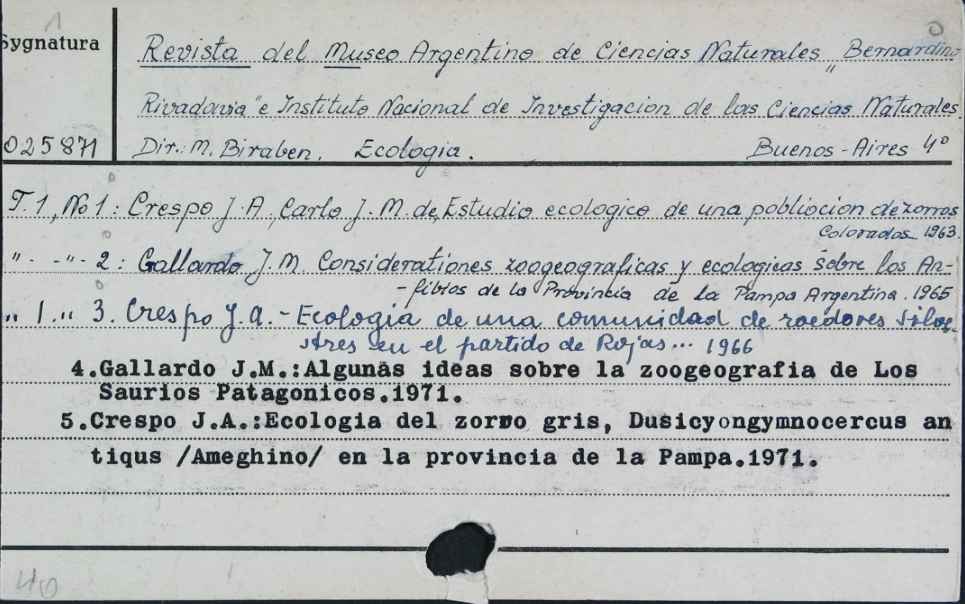 Sygnatura
025871
Revista del Museo Argentino de Ciencias Naturales „ Bernardino
Rivadavia" e Instituto Nacional de Investigacion de las Ciencias Naturales.
Dir.: M. Biraben. Ecologia. Buenos-Aires 4°
T. 1, No 1: Crespo J. A., Carlo J. M. de, Estudio ecologico de una pobliocion de zorros
Colorados 1963.
" - " - 2: Gallardo J. M. Considerationes zoogeograficas y ecologicas sobre los An-
- fibios de la Provincia de la Pampa Argentina. 1965
" 1 " 3. Crespo J. A. - Ecologia de una comunidad de roedores silve-
stres en el partido de Rojas... 1966
4.Gallardo J.M.:Algunas ideas sobre la zoogeografia de Los
Saurios Patagonicos.1971.
5.Crespo J.A.:Ecologia del zorro gris, Dusicyongymnocercus an
tiqus /Ameghino/ en la provincia de la Pampa.1971.
40